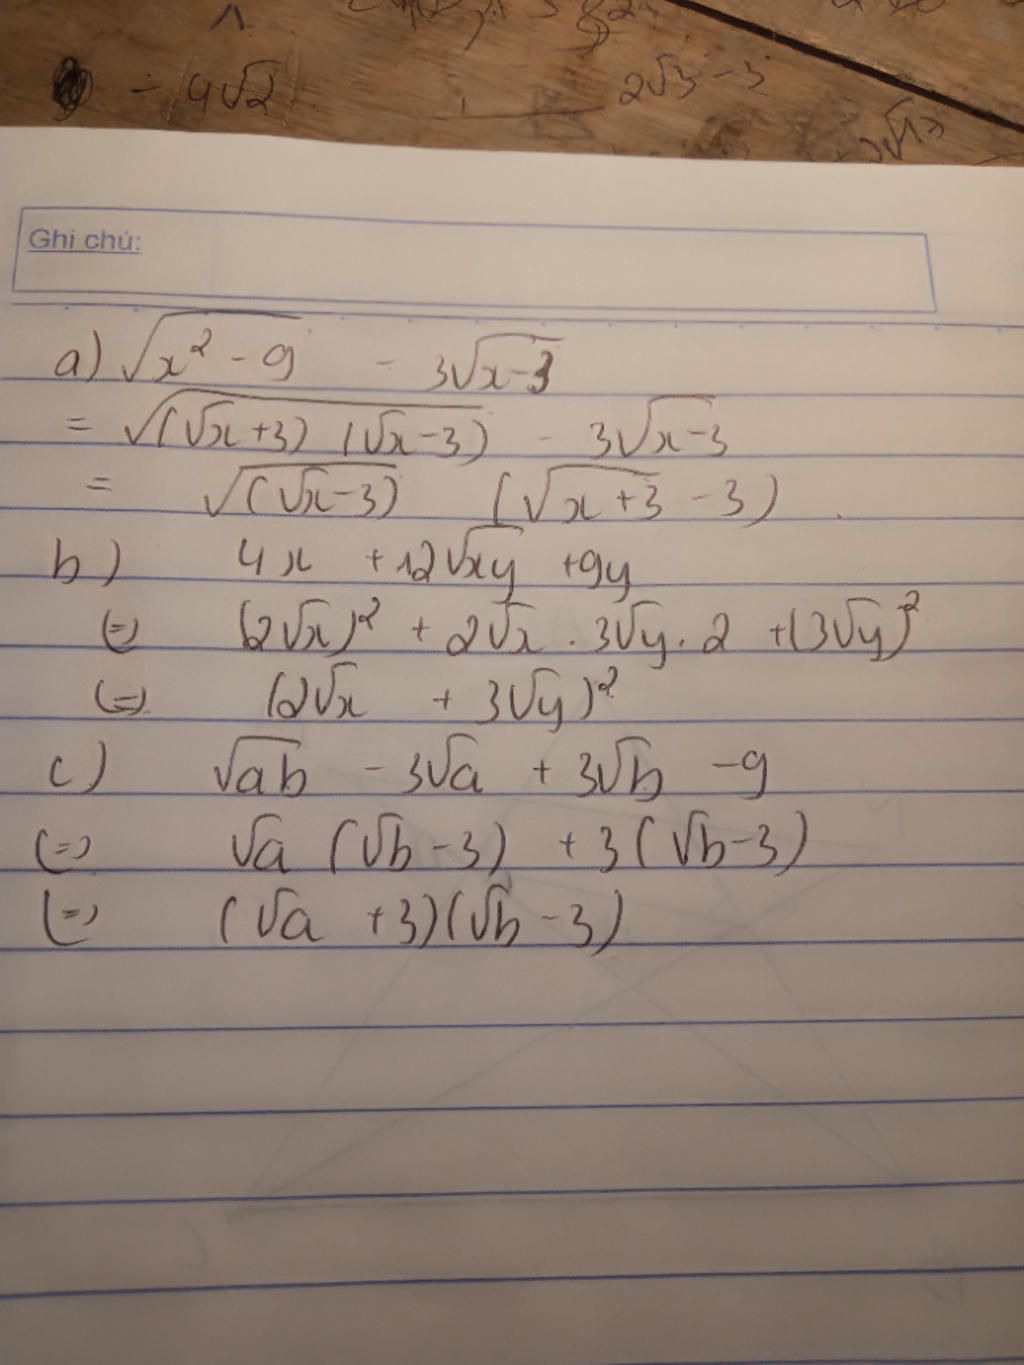 - 4√2
2√3 - 3
Ghi chú:
a) √(x² - 9) - 3√(x-3)
= √((√x+3) (√x-3)) - 3√(x-3)
= √((√x-3)) (√(x+3) - 3)
b) 4x + 12√(xy) + 9y
(=) (2√x)² + 2√x . 3√y . 2 + (3√y)²
(=) (2√x + 3√y)²
c) √(ab) - 3√a + 3√b - 9
(=) √a (√b - 3) + 3(√b-3)
(=) (√a + 3)(√b - 3)